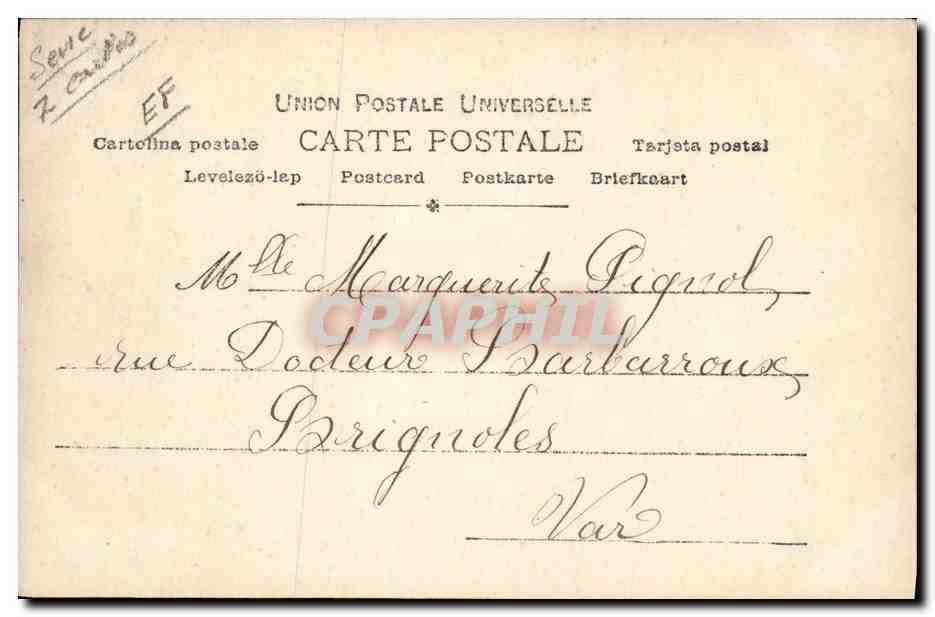 EF
UNION POSTALE UNIVERSELLE
Cartolina postale CARTE POSTALE Tarjeta postal
Levelező-lap Postcard Postkarte Briefkaart
Mlle Marguerite Pignol,
rue Docteur Barbarroux,
CPAPHIL
Brignoles
Var